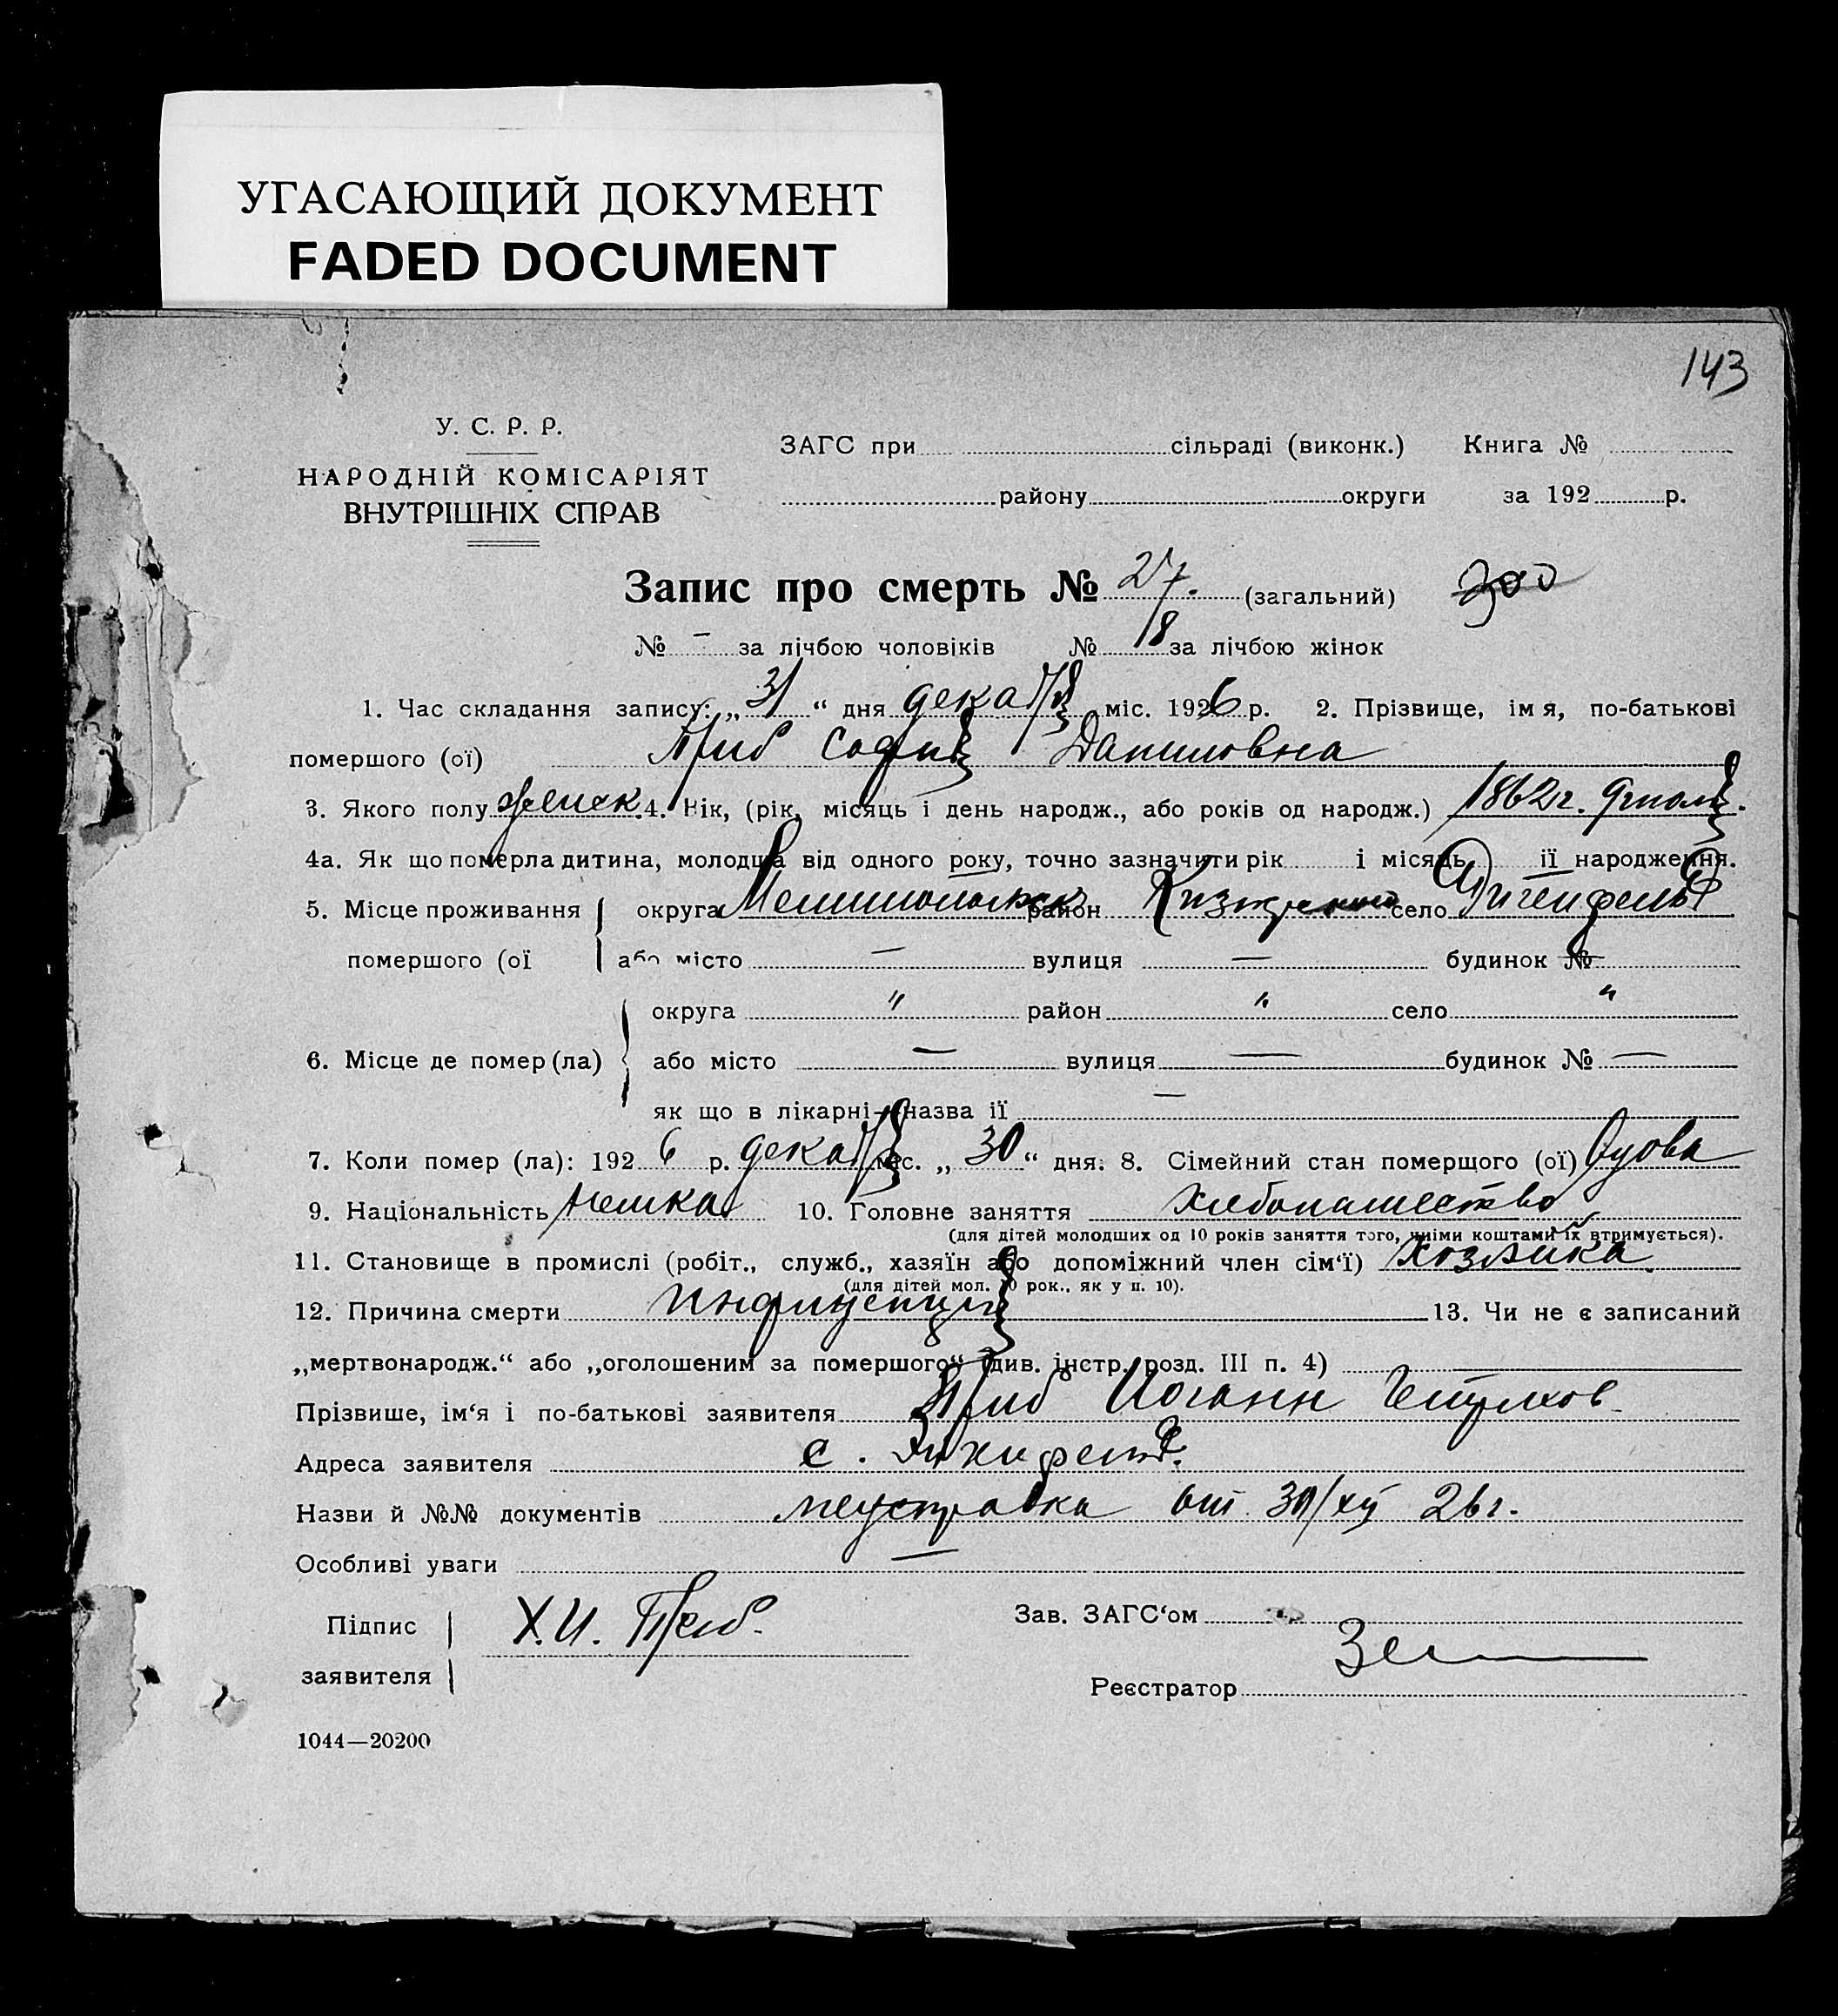 УГАСАЮЩИЙ ДОКУМЕНТ
FADED DOCUMENT
143
У. С. Р. Р.
НАРОДНІЙ КОМІСАРІЯТ
ВНУТРІШНІХ СПРАВ
ЗАГС при сільраді (виконк.) Книга №
району округи за 192 р.
Запис про смерть № 27. (загальний) 300
№ – за лічбою чоловіків № 18 за лічбою жінок
1. Час складання запису: „ 31 “ дня декабря міс. 1926 р. 2. Прізвище, імя, по-батькові
помершого (ої) София Даниловна
3. Якого полу женск. 4. Вік, (рік, місяць і день народж., або років од народж.) 1862 г.
4а. Як що померла дитина, молодша від одного року, точно зазначити рік і місяць її народження.
5. Місце проживання округа Мелитопольск район село
помершого (ої або місто — вулиця — будинок №
округа " район " село "
6. Місце де помер (ла) або місто — вулиця — будинок № —
як що в лікарні—назва її —
7. Коли помер (ла): 1926 р. декабря міс. „ 30 “ дня. 8. Сімейний стан померщого (ої) Вдова
9. Національність Немка 10. Головне заняття Хлебопашество
(для дітей молодших од 10 років заняття того, чиїми коштами їх втримується).
11. Становище в промислі (робіт., служб., хазяїн або допоміжний член сім‘ї) Хозяйка
(для дітей мол. 10 рок., як у п. 10).
12. Причина смерти 13. Чи не є записаний
„мертвонародж.“ або „оголошеним за помершого“ (див. інстр. розд. III п. 4)
Прізвише, ім‘я і по-батькові заявителя Иоганн
Адреса заявителя с.
Назви й №№ документів от 30/XII 26 г.
Особливі уваги —
Підпис Х. И. Зав. ЗАГС‘ом
заявителя Реєстратор
1044—20200